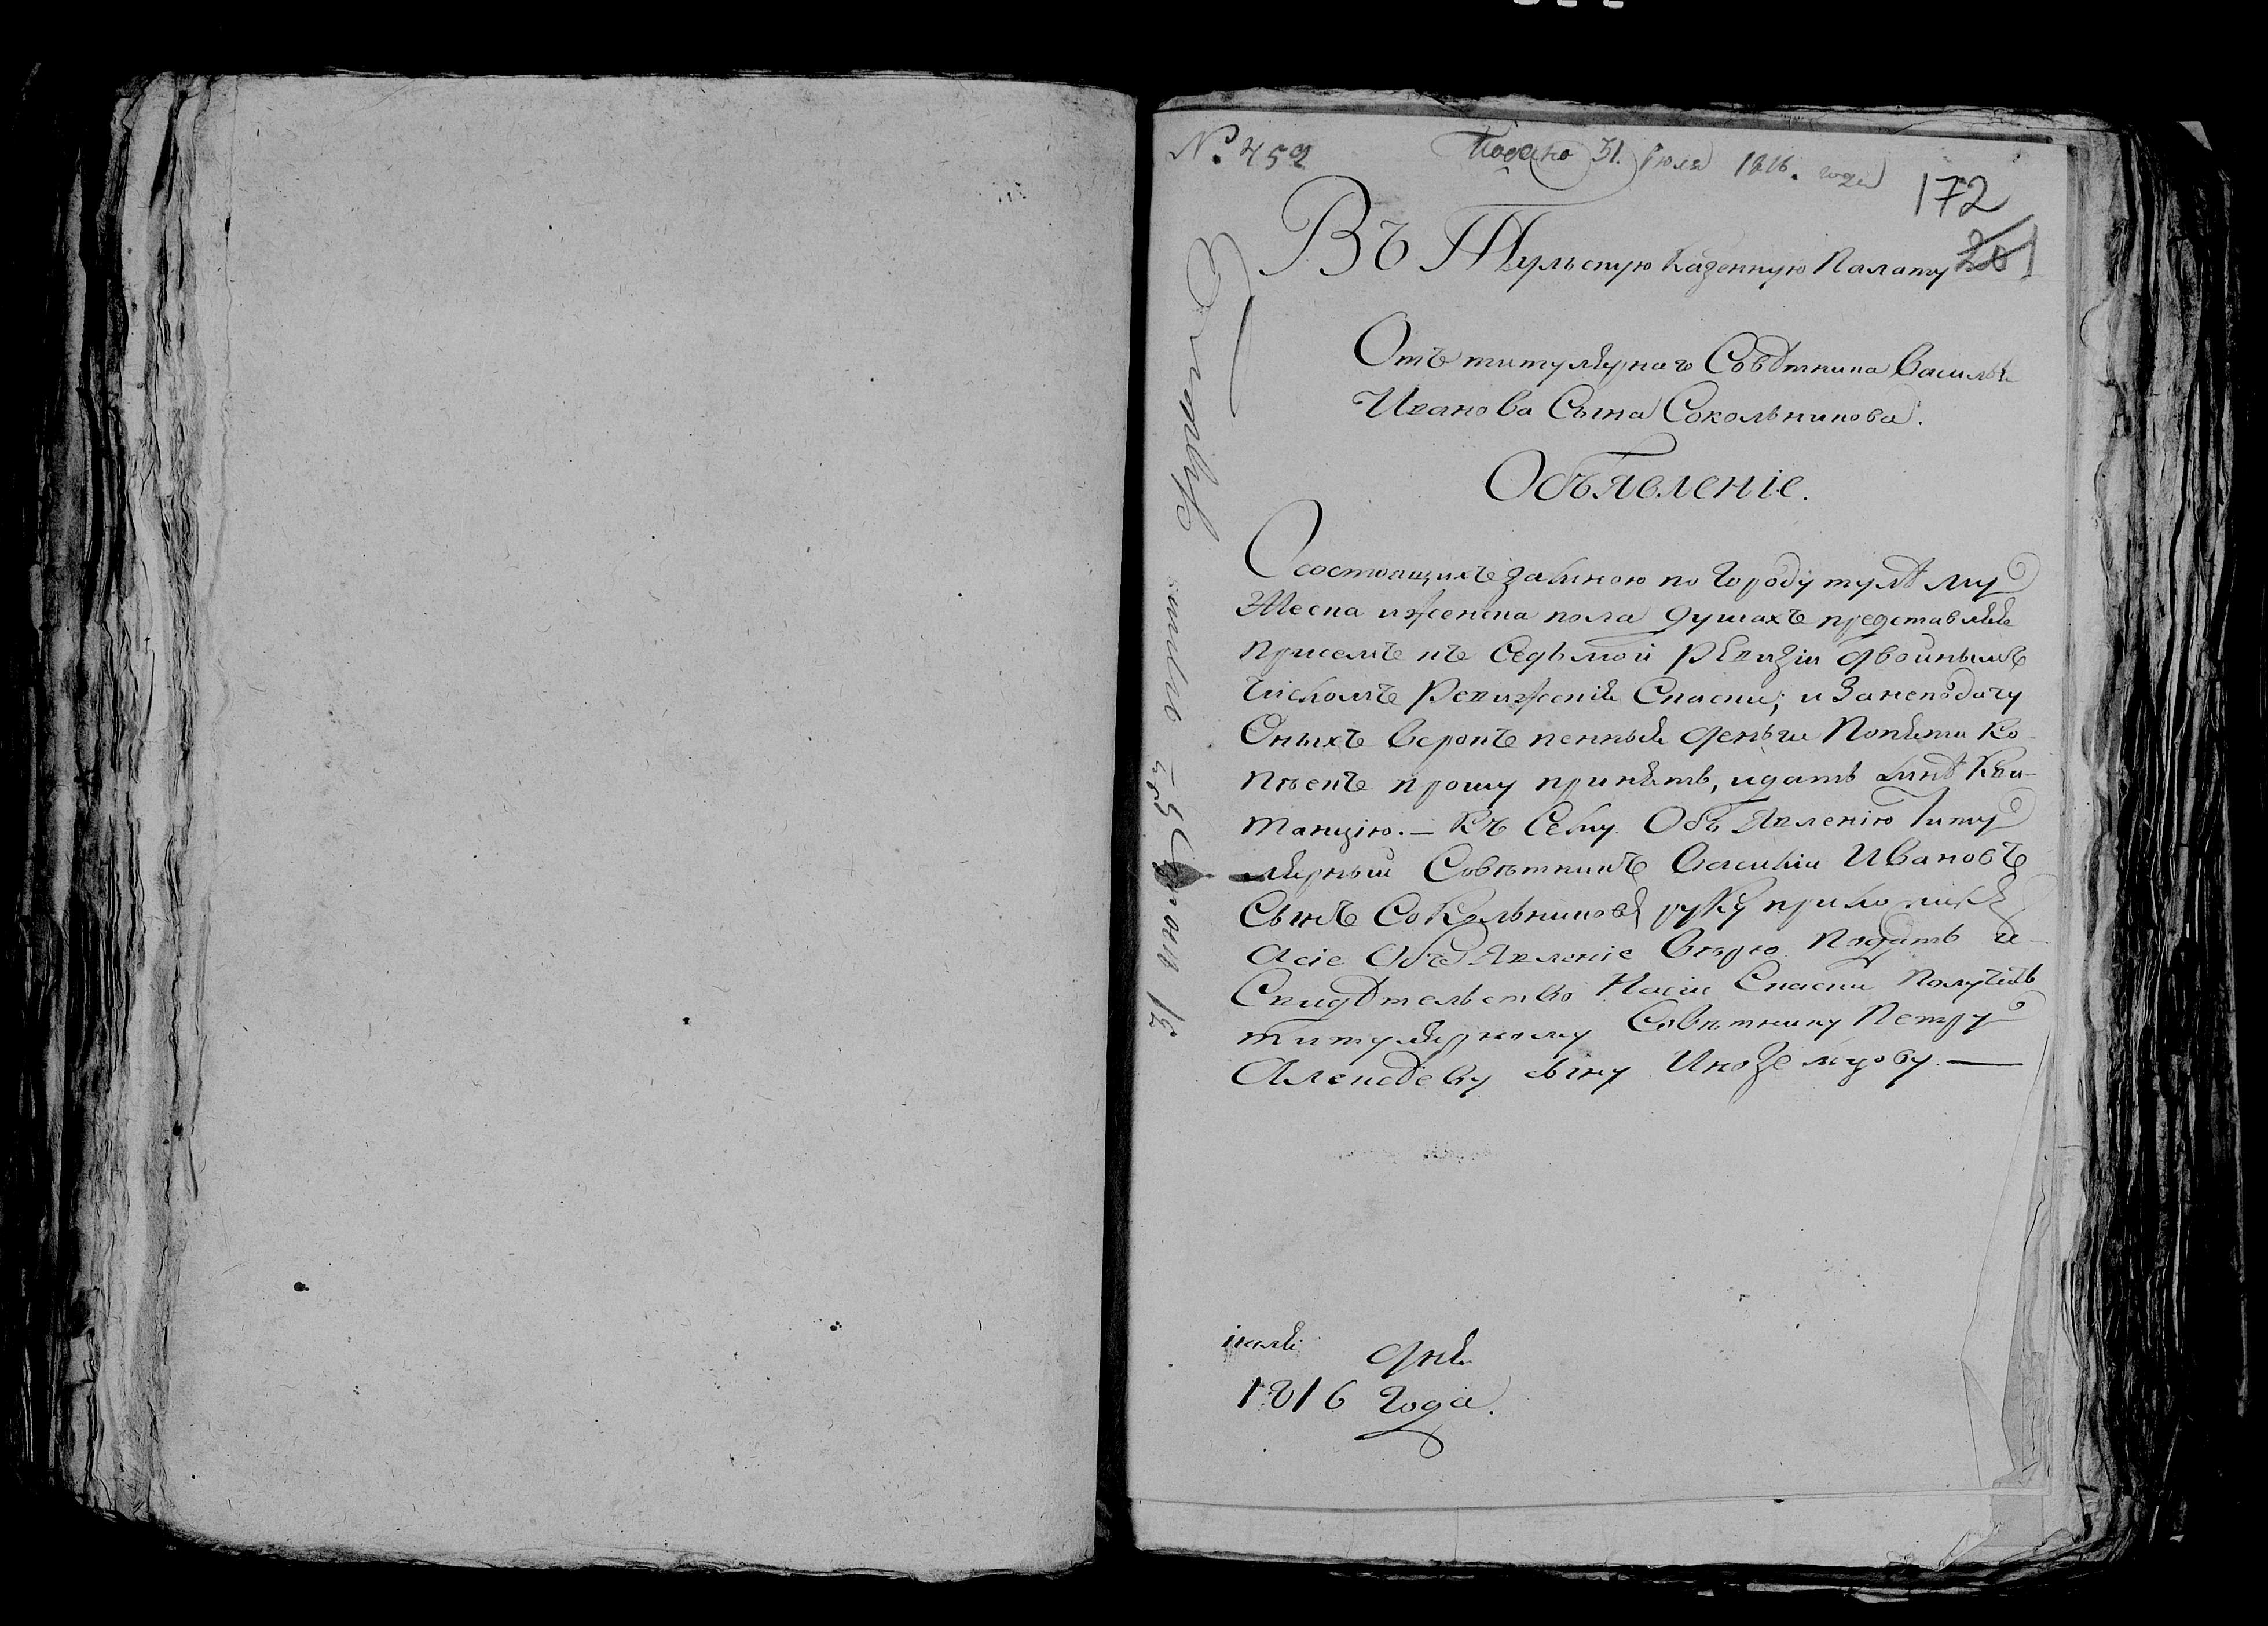 №. 459
Подано 31. Июля 1816. года
172
Въ Тульскую Казенную Палату
Отъ титулярнаго Совѣтника Василья
Иванова Сына Сокольникова.
Объявленіе.
О состоящихъ за мною по городу тулѣ му
жеска и женска пола душахъ представляя
присемъ къ Седьмой Ревизіи двойнымъ
числомъ Ревижскія Сказки; и За неподачу
Оныхъ Всрокъ пенныя деньги Попяти Ко-
пѣекъ прошу принять, и дать мнѣ Кви-
танцію. — Къ Сему Объявленію Титу
лярный Совѣтникъ Василій Ивановъ
Сынъ Сокольниковъ руку приложилъ
Асіе Объявленіе Вѣрю Подать и
Свидѣтельство Насіи Сказки Получить
титулярному Совѣтнику Петру
Алексѣеву сыну Иноземцову. —
іюля дня
1816 Года.
31 Июля